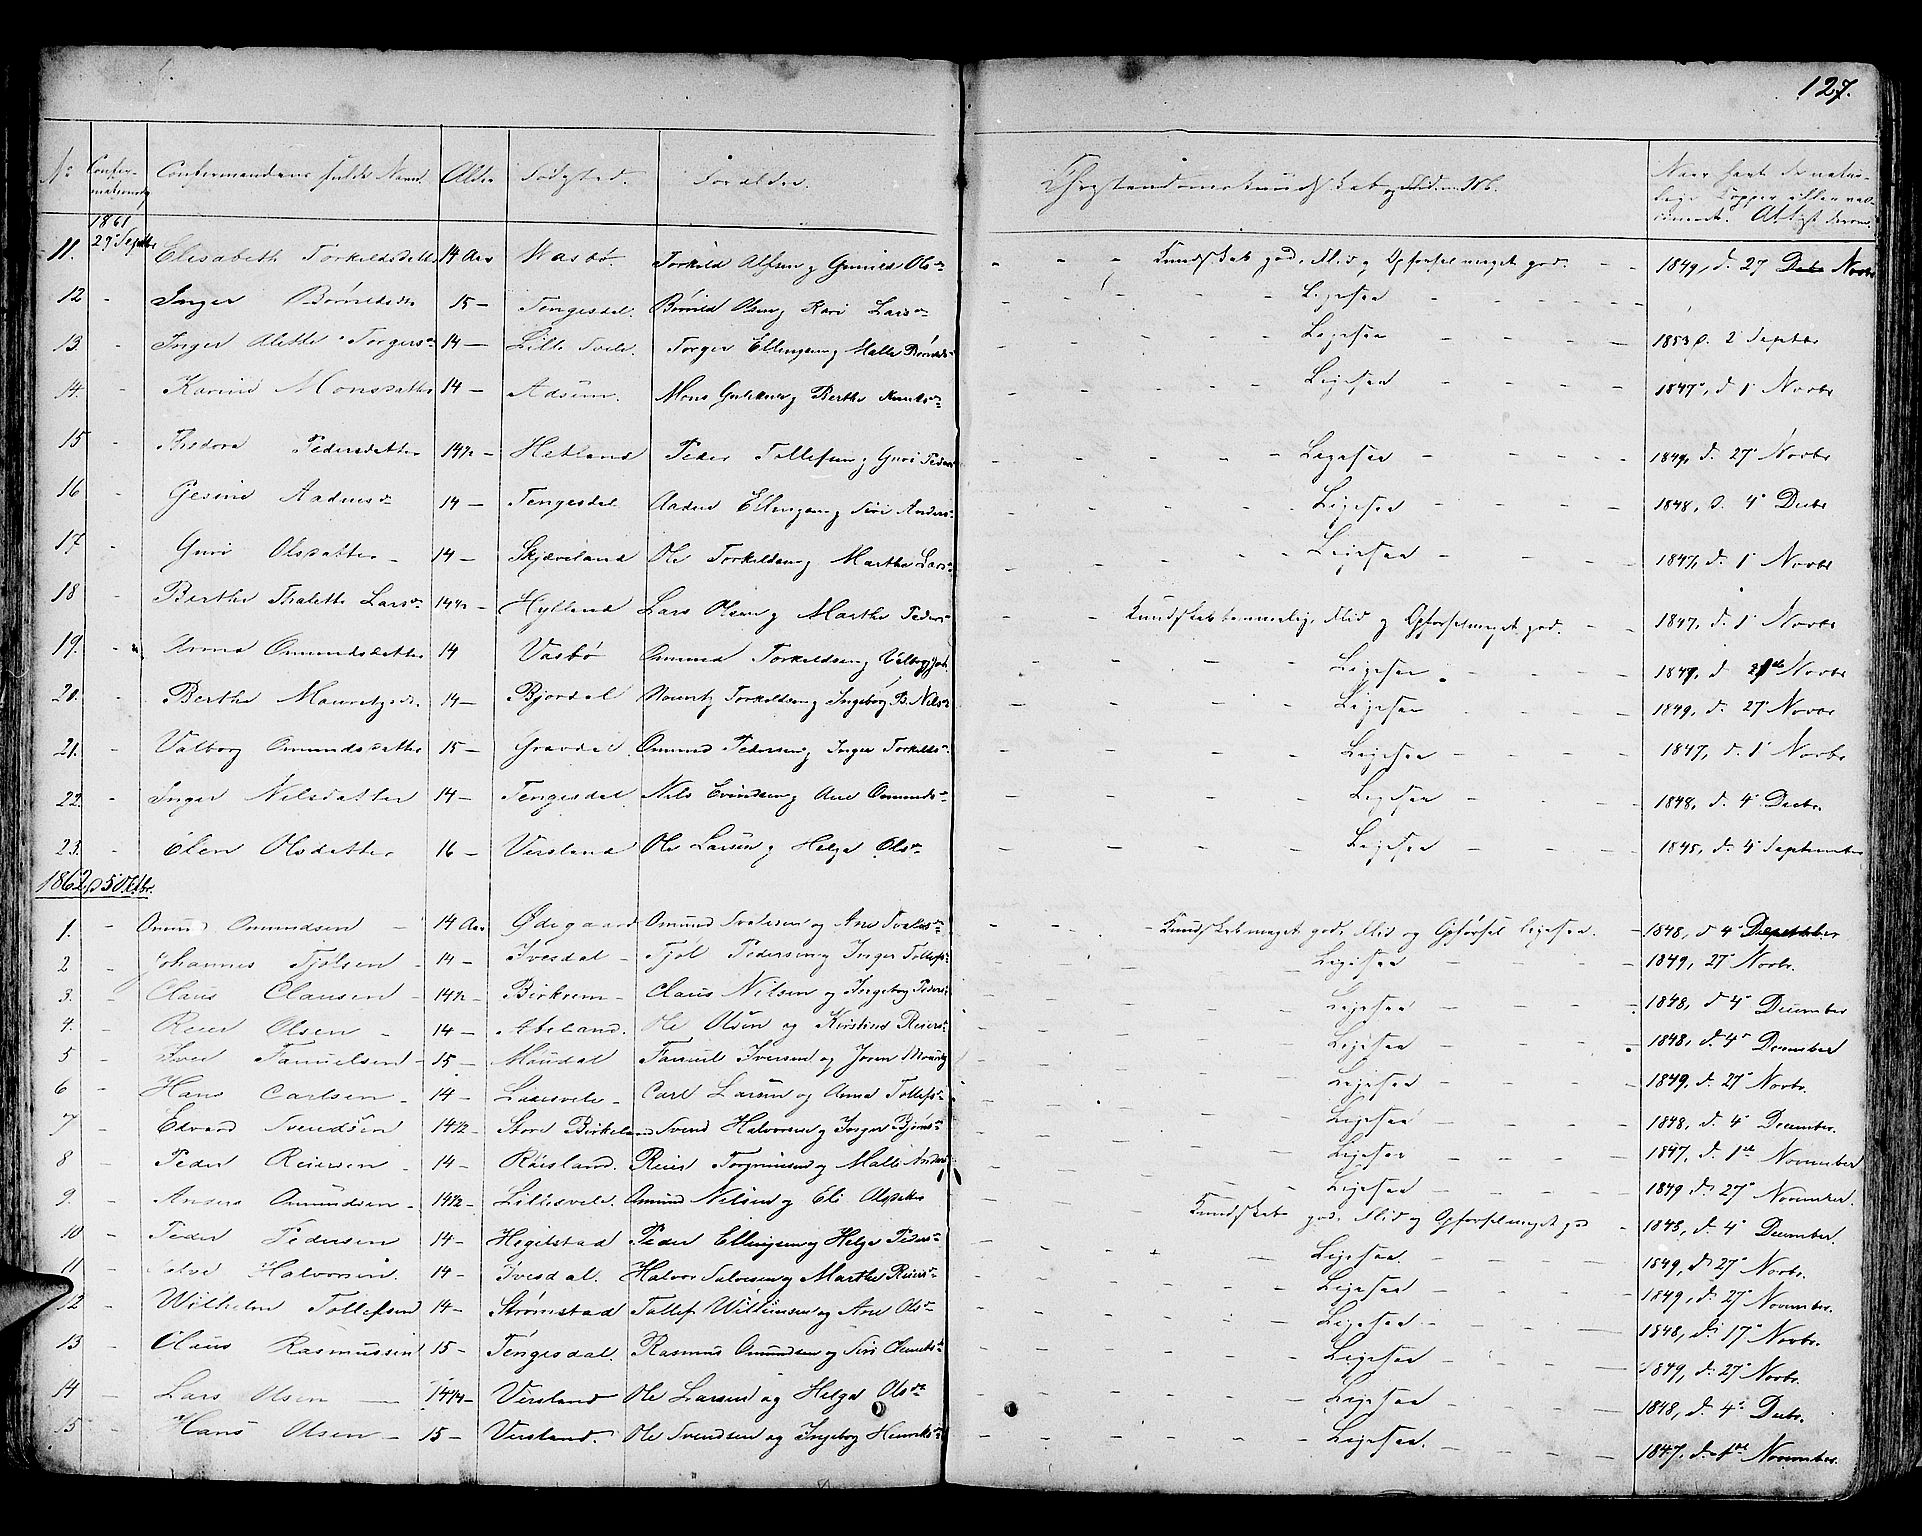 127.
No Confirmationsdag Confirmandens fulde Navn. Alder Fødested. Forældre. Christendomskundskab og Flid m. M. Naar havt de naturlige Kopper eller vaccineret. Attest derom.
1861
29de Septbr
11. Elisabeth Torkeldsdatter 14 Aar Vasbø. Torkild Alfsen og Gunild Olsdr - - - Kundskab god, Flid og Opførsel meget god. - - 1849, d. 27 Novbr
12 - Inger Børildsdr 15 - Tengesdal. Børild Olsen og Kari Larsdr - - - - Ligesaa - - - -
13. - Inger Alette Torgersdr 14 - Lille Svele. Torger Ellingsen og Malle - - - - Ligesaa - - - - 1853 d. 2 Septbr
14. - Karine Monsdatter 14 - Adsen. Mons og Berthe Knudsdr - - - - Ligesaa - - - - 1847, d 1 Novbr
15 - Thedora Pedersdatter 14½ - Hetland Peder Tollefsen og Guri Peders - - - - Ligesaa - - - - 1849, d. 27 Novbr
16 - Gesine Aadnesdr 14 - Tengesdal Aadne Ellingsen og Siri Anders - - - - Ligesaa - - - - 1848, d. 4 Decbr
17 - Guri Olsdatter - 14 - Skjæveland Ole Torkeldsen og Marthe Lars - - - - Ligesaa - - - - 1847, d. 1 Novbr
18 Berthe Thalette Larsdr 14½ - Hylland Lars Olsen og Marthe Peders - - Kundskab temmelig, Flid og Opførsel meget god. - - 1847, d. 1 Novbr
19. - Anna Ommundsdatter 14 Vasbø Ommund Torkeldsen og Valborg - - - - Ligesaa - - - - 1849, d Novbr
20. - Berthe Mauritzdr. 14 - Bjordal Mauritz Torkeldsen og Ingeborg B. Nilsdr - - - - Ligesaa - - - - 1849, d. 27 Novbr
21. - Valborg Ommundsdatter 15 - Gravdal. Ommund Pedersen og Inger Torkelds. - - - - Ligesaa - - - - 1847, d. 1 Novbr
22. - Inger Nilsdatter 14 - Tengesdal. Nils Evindsen og Ane Ommunds - - - - Ligesaa - - - - 1848, d. 4 Decbr.
23. - Elen Olsdatter 16 - Versland Ole Larsen og Helga Olsdr - - - - Ligesaa - - - - 1845, d. 4 September
1862 d 5 Octbr.
1. - Omund Omundsen - 14 Aar Ødegaard Omund Salvesen og Ane - - - Kundskab meget god, Flid og Opførsel ligesaa. - 1848, d 4 December
2 - Johannes Tjølsen - 14 - Ivesdal - Tjøl Pedersen og Inger Tollefs - - - - Ligesaa - - - - 1849, 27 Novbr.
3. - Claus Clausen - 14½ - Birkrem - Claus Nilsen og Ingeborg Peders - - - - Ligesaa - - - - 1848, d 4 December
4. - Reier Olsen - 14 - Abeland. Ole Olsen og Kirstine Reiers - - - - Ligesaa - - - - 1848, d. 4 December
5 - Iver Samuelsen - 15 - Maudal Samuel Iversen og Joren Mauritz - - - - Ligesaa - - - - 1849, d. 27 Novbr.
6 - Hans Carlsen - 14 - Ladesvele - Carl Larsen og Anna Tollefs - - - - Ligesaa - - - - 1848, d. 4 December.
7 - Edvard Svendsen 14½ - Store Birkeland Svend Halvorsen og Inger Bjørns - - - - Ligesaa - - - - 1847, d. 1ste November
8 - Peder Reiersen - 14 - Røisland. Reier Torgrimsen og Malle Anders - - - - Ligesaa - - - - 1849 d. 27 November.
9 - Anders Omundsen - 14½ - Lillesvele. Omund Nilsen og Eli Olsdatter - Kundskab god, Flid og Opførsel meget god - 1848, d. 4 December.
10 - Peder Pedersen 14 - Hegelstad Peder Ellingsen og Helga Peders - - - - Ligesaa. - - - - 1849, d. 27 Novbr.
11 - Salve Halvorsen. 14 - Ivesdal. Halvor Salvesen og Marthe Reiers - - - - Ligesaa - - - - 1849, d. 27 November.
12 - Wilhelm Tollefsen 14 - Strømstad Tollef Willumsen og Ane Olsdr - - - - Ligesaa - - - - 1848, d. 17 Novbr.
13 - Claus Rasmussen 15 - Tengesdal. Rasmus Omundsen og Siri - - - - Ligesaa - - - - 1849, d. 27 Novbr.
14 - Lars Olsen - 14¼ - Versland Ole Larsen og Helga Olsdr - - - - Ligesaa - - - - 1848, d. 4 Decbr.
15 - Hans Olsen - 15 - Versland. Ole Svendsen og Ingeborg Henriks - - - - Ligesaa. - - - - 1847, d. 1ste November.